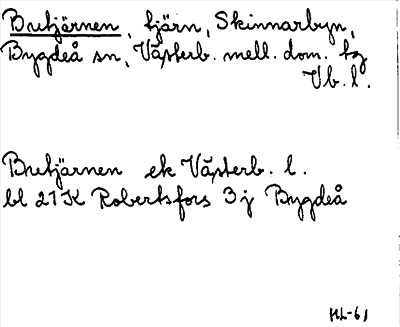 Butjärnen, tjärn, Skinnarbyn,
Bygdeå sn, Västerb. mell. dom. tg
Vb. l.
Butjärnen ek Västerb. l.
bl 21K Robertsfors 3j Bygdeå
HL-61